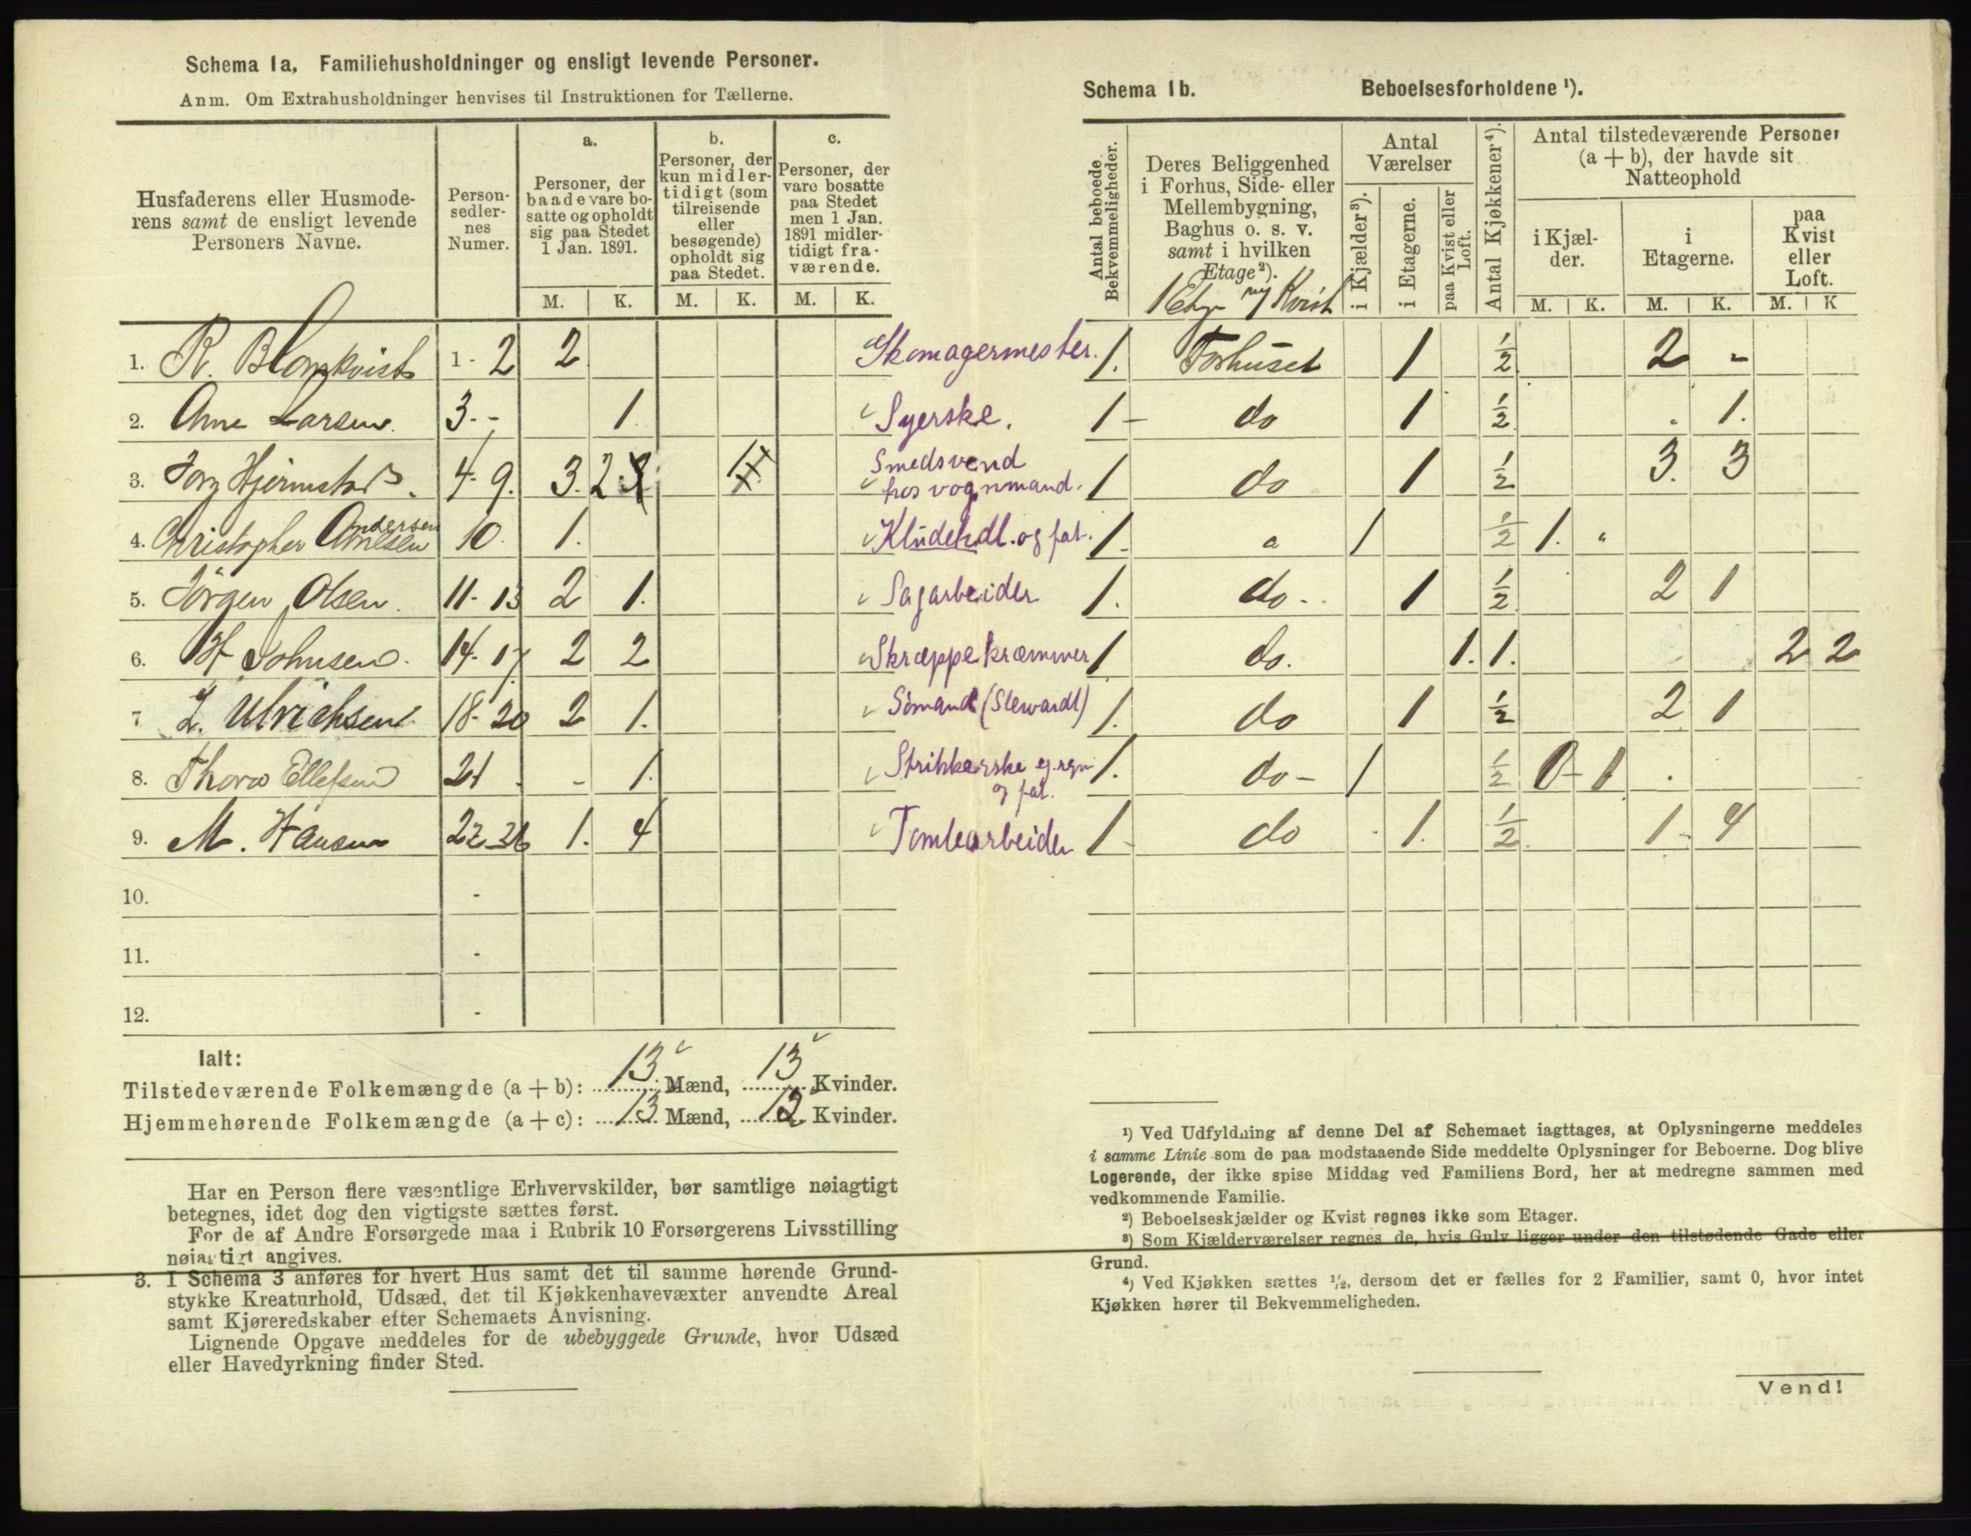 Schema 1a, Familiehusholdninger og ensligt levende Personer.
Anm. Om Extrahusholdninger henvises til Instruktionen for Tællerne.
Husfaderens eller Husmode-
rens samt de ensligt levende
Personers Navne.
Person-
sedler-
nes
Numer.
a.
Personer, der
baade vare bo-
satte og opholdt
sig paa Stedet
1 Jan. 1891.
b.
Personer, der
kun midler-
tidigt (som
tilreisende
eller
besøgende)
opholdt sig
paa Stedet.
c.
Personer, der
vare bosatte
paa Stedet
men 1 Jan.
1891 midler-
tidigt fra-
værende.
M. K. M. K. M. K.
1. R. Blomkvist 1 - 2 2 Skomagermester.
2. Ane Larsen. 3 - - 1. Syerske.
3. Hjermstad. 4 - 9. 3. 2 Smedsvend
hos vognmand.
4. Christopher Andersen 10. 1. Kludehdl. og fat.
5. Jörgen Olsen. 11 - 13 2 1. Sagarbeider
6. H Johnsen. 14 - 17 2 2 Skræppekræmmer
7 Z. Ulrichsen 18 - 20 2 1. Sömand (Stewardt)
8. Thora Ellefsen 21 - - 1. Strikkerske
og fat.
9. M. Hansen 22-26 1. 4 Tomtearbeider
10. -
11. -
12. -
Ialt:
Tilstedeværende Folkemængde (a + b): 13 Mænd, 13 Kvinder.
Hjemmehørende Folkemængde (a + c): 13 Mænd, 12 Kvinder.
Har en Person flere væsentlige Erhvervskilder, bør samtlige nøiagtigt
betegnes, idet dog den vigtigste sættes først.
For de af Andre Forsørgede maa i Rubrik 10 Forsørgerens Livsstilling
nøiagtigt angives.
3. I Schema 3 anføres for hvert Hus samt det til samme hørende Grund-
stykke Kreaturhold, Udsæd, det til Kjøkkenhavevæxter anvendte Areal
samt Kjøreredskaber efter Schemaets Anvisning.
Lignende Opgave meddeles for de ubebyggede Grunde, hvor Udsæd
eller Havedyrkning finder Sted.
Schema 1b. Beboelsesforholdene ¹).
Antal beboede
Bekvemmeligheder.
Deres Beliggenhed
i Forhus, Side- eller
Mellembygning,
Baghus o. s. v.
samt i hvilken
Etage²).
1 Etage og Kvist
Antal
Værelser
i Kjælder³).
i Etagerne.
paa Kvist eller
Loft.
Antal Kjøkkener⁴).
Antal tilstedeværende Personer
(a + b), der havde sit
Natteophold
i Kjæl-
der.
i
Etagerne.
paa
Kvist
eller
Loft.
M. K. M. K. M. K
1. Forhuset 1 ½ 2 -
1 - do 1 ½ . 1.
1 do 1 ½ 3. 3
1 - " 1 ½ 1. "
1. do - 1 ½ 2 1
1 do. 1. 1. 2 2
1. do 1 ½ 2 1
1. do - 1 ½ 0 - 1 .
1 - do 1. ½ 1 - 4
¹) Ved Udfyldning af denne Del af Schemaet iagttages, at Oplysningerne meddeles
i samme Linie som de paa modstaaende Side meddelte Oplysninger for Beboerne. Dog blive
Logerende, der ikke spise Middag ved Familiens Bord, her at medregne sammen med
vedkommende Familie.
²) Beboelseskjælder og Kvist regnes ikke som Etager.
³) Som Kjælderværelser regnes de, hvis Gulv ligger under den tilstødende Gade eller
Grund.
⁴) Ved Kjøkken sættes ½, dersom det er fælles for 2 Familier, samt 0, hvor intet
Kjøkken hører til Bekvemmeligheden.
Vend!